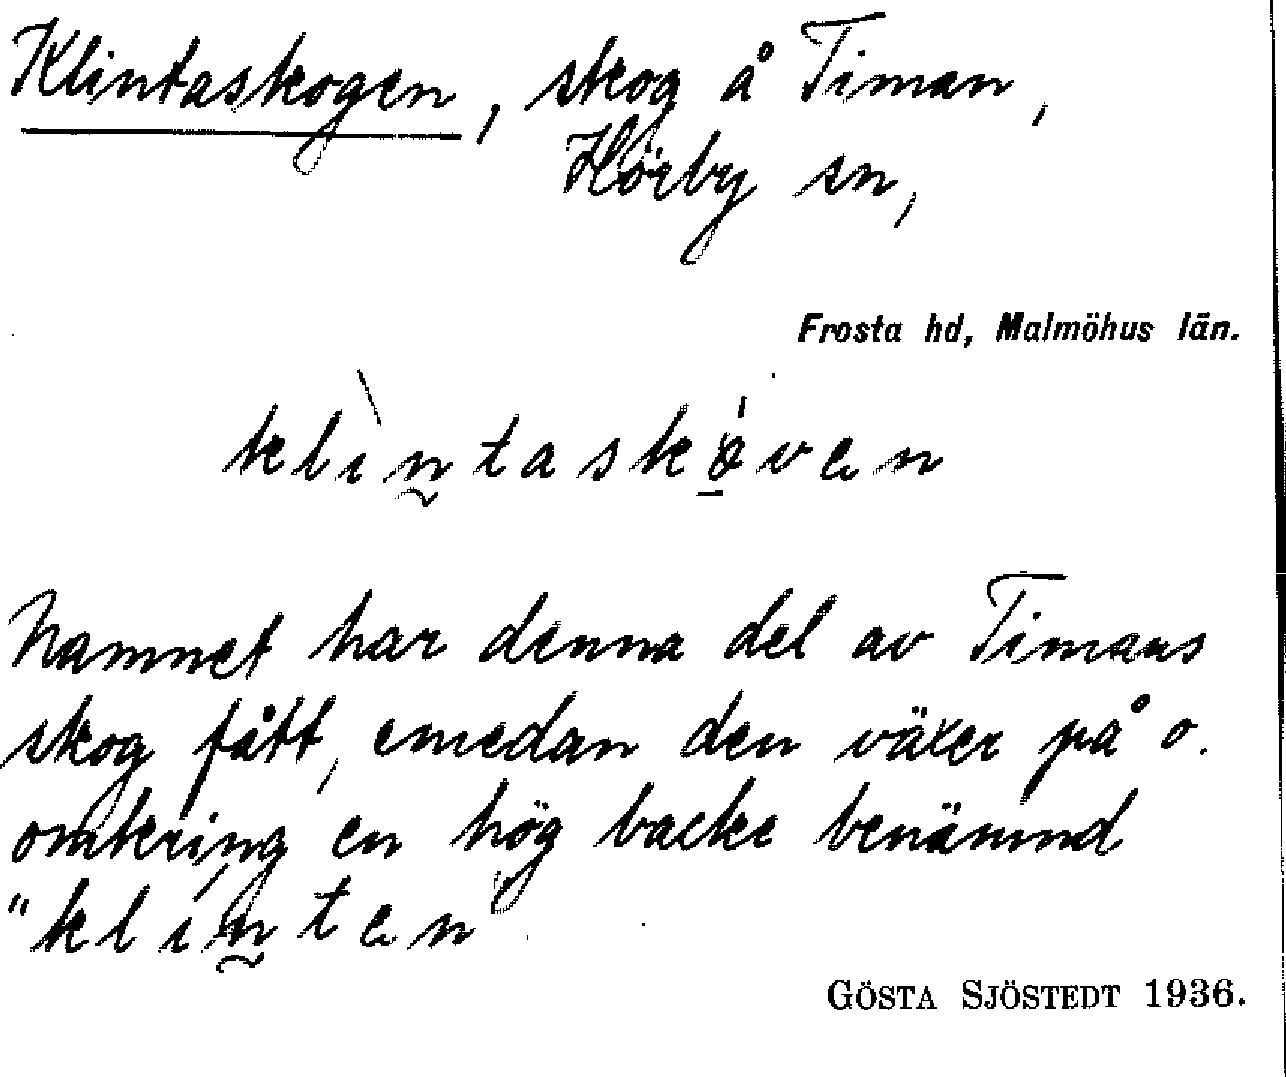 Klintaskogen, skog å Timan,
Hörby sn,
Frosta hd, Malmöhus län.
klìn̰taskǫ́ven
Namnet har denna del av Timans
skog fått, emedan den växer på o.
omkring en hög backe benämnd
"klín̰ten"
GÖSTA SJÖSTEDT 1936.